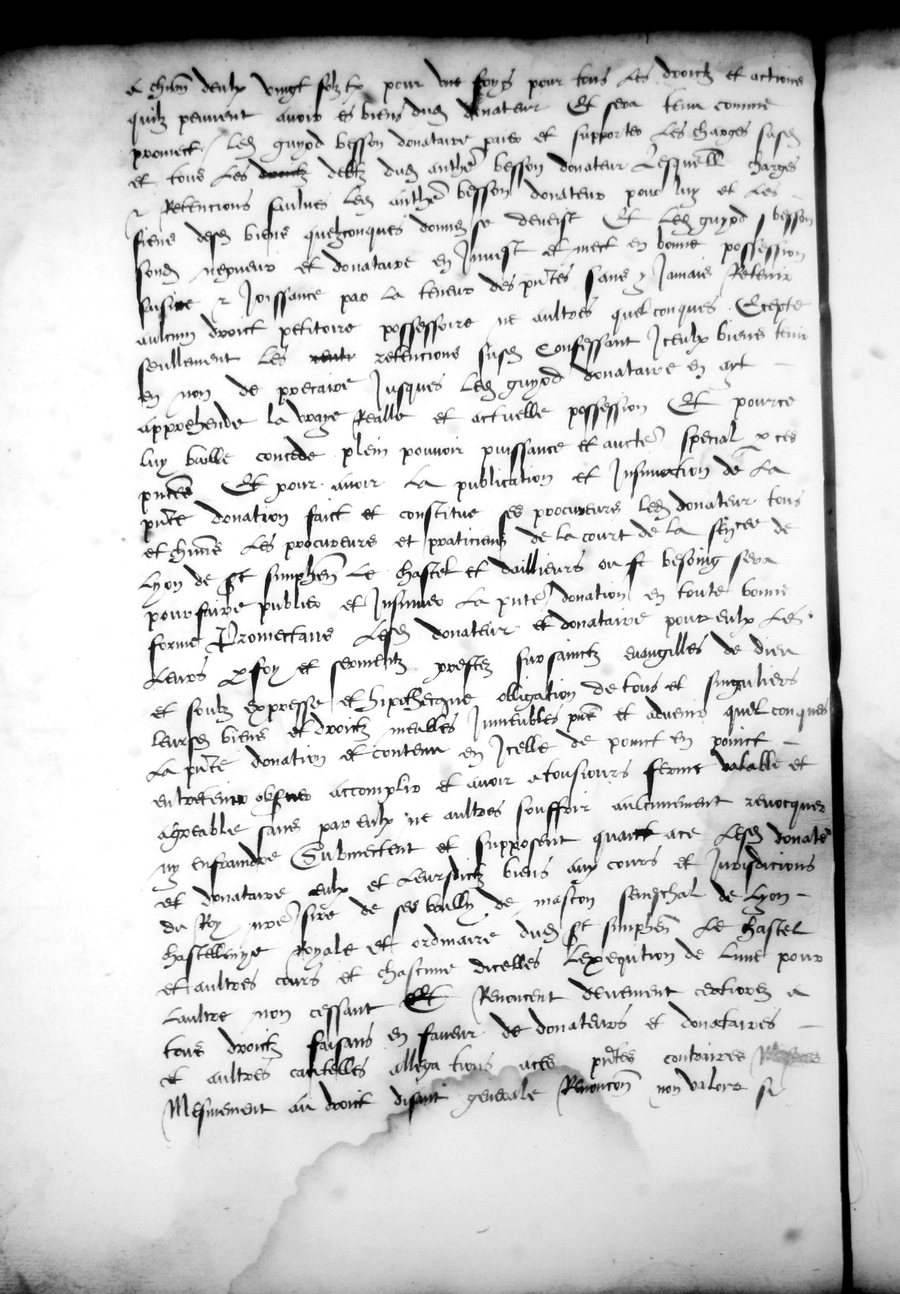 a chun deulx vingt solz tz pour une foys pour tous les droictz et actions
quilz peuvent avoir es biens dud donateur Et sera tenu comme
promect led guyod besson donataire paier et supporter les charges susd
et tous les debtz dud anthe besson donateur Lesquell charges
et Retencions saulves led anthe besson donateur pour luy et les
siens desd biens quelzconques donnes se devest Et led guyod besson
sond nepveur et donataire en Invest et mect en bonne possession
saisine et Joissance par la teneur des pntes sans y Jamais Retenir
aulcun droict petitoire possessoire ne aultres quelconques Excepte
seullement les retencions susd Confessant Iceulx biens tenir
en non de precaire Jusques led guyod donataire en ayt
apprehende la vraye Realle et actuelle possession Et pource
luy baille concede plein pouvoir puissance et aucte special par ces
pntes Et pour avoir la publication et Insinuation de la
pnte donation faict et constitue ses procureurs led donateur tous
et chuns les procureurs et praticiens de la court de la sencee de
Lyon de st simphen le chastel et dailleurs ou se besoing sera
pour faire publier et Insinuer la pnte donation en toute bonne
forme Promectans lesd donateur et donataire pour eulx les
leurs par foy et sermentz prestez sur sainctz evangilles de dieu
et soubz expresse et hipothecque obligation de tous et singuliers
leursd biens et droictz meubles Immeubles pns et advenir quelconques
la pnte donation et contenu en Icelle de poinct en poinct
entretenir observer accomplir et avoir a tousiours ferme valable et
agreable sans par eulx ne aultres souffrir aulcunement revocquer
ny enfraindre Submectent et supposent quant ace lesd donate
et donataire eulx et leursdictz biens aux cours et Jurisdicions
du Roy nre sire de ses bailly de mascon seneschal de Lyon
chastellenye royale et ordinaire dud st simphen le chastel
et aultres cours et chascune dicelles Lexeqution de lune pour
laultre non cessant Renoncent deuement certiorez a
tous droictz faisans en faveur de donateurs et donataires
et aultres cautelles allegations aces pntes contraires
Mesmement au droict disant generale Renoncon non valoir si